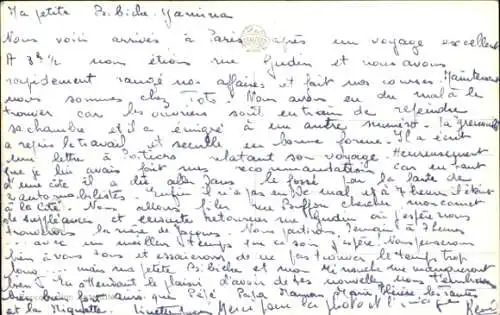 Ma petite Bibiche. Yamina
Nous voici arrivés à Paris après un voyage excellent
A 3h 1/2 nous étions rue Gudin et nous avons
rapidement rangé nos affaires et fait nos courses. Maintenant
nous sommes chez Toto. Nous avons eu du mal à le
trouver car les ouvriers sont en train de repeindre
sa chambre et il a émigré à un autre numéro.
a repris le travail et seule en bonne forme. Il a écrit
une lettre à Poitiers relatant son voyage. Heureusement
que je lui avais fait mes recommandations car en haut
d'une côte il a dû aller dans le fossé par la faute de
2 automobilistes. Enfin il n'a pas eu de mal et à 7 heures il était
à la Cité. Nous allons filer rue Buffon chercher mon carnet
de suppléances et ensuite retourner rue Gudin où j'espère nous
trouverons la mère de Jacques. Nous partirons
avec un meilleur temps que ce soir j'espère. Nous penserons
bien à vous tous et essaierons de ne pas trouver le temps trop
long mais ma petite Bibiche et mon Minouche me manqueront
bien. En attendant le plaisir d'avoir de tes nouvelles nous t'embrassons
bien bien fort ainsi que Pépé Papa Maman Marie Thérèse les tantes
et la Miquette. Merci pour la photo et
René